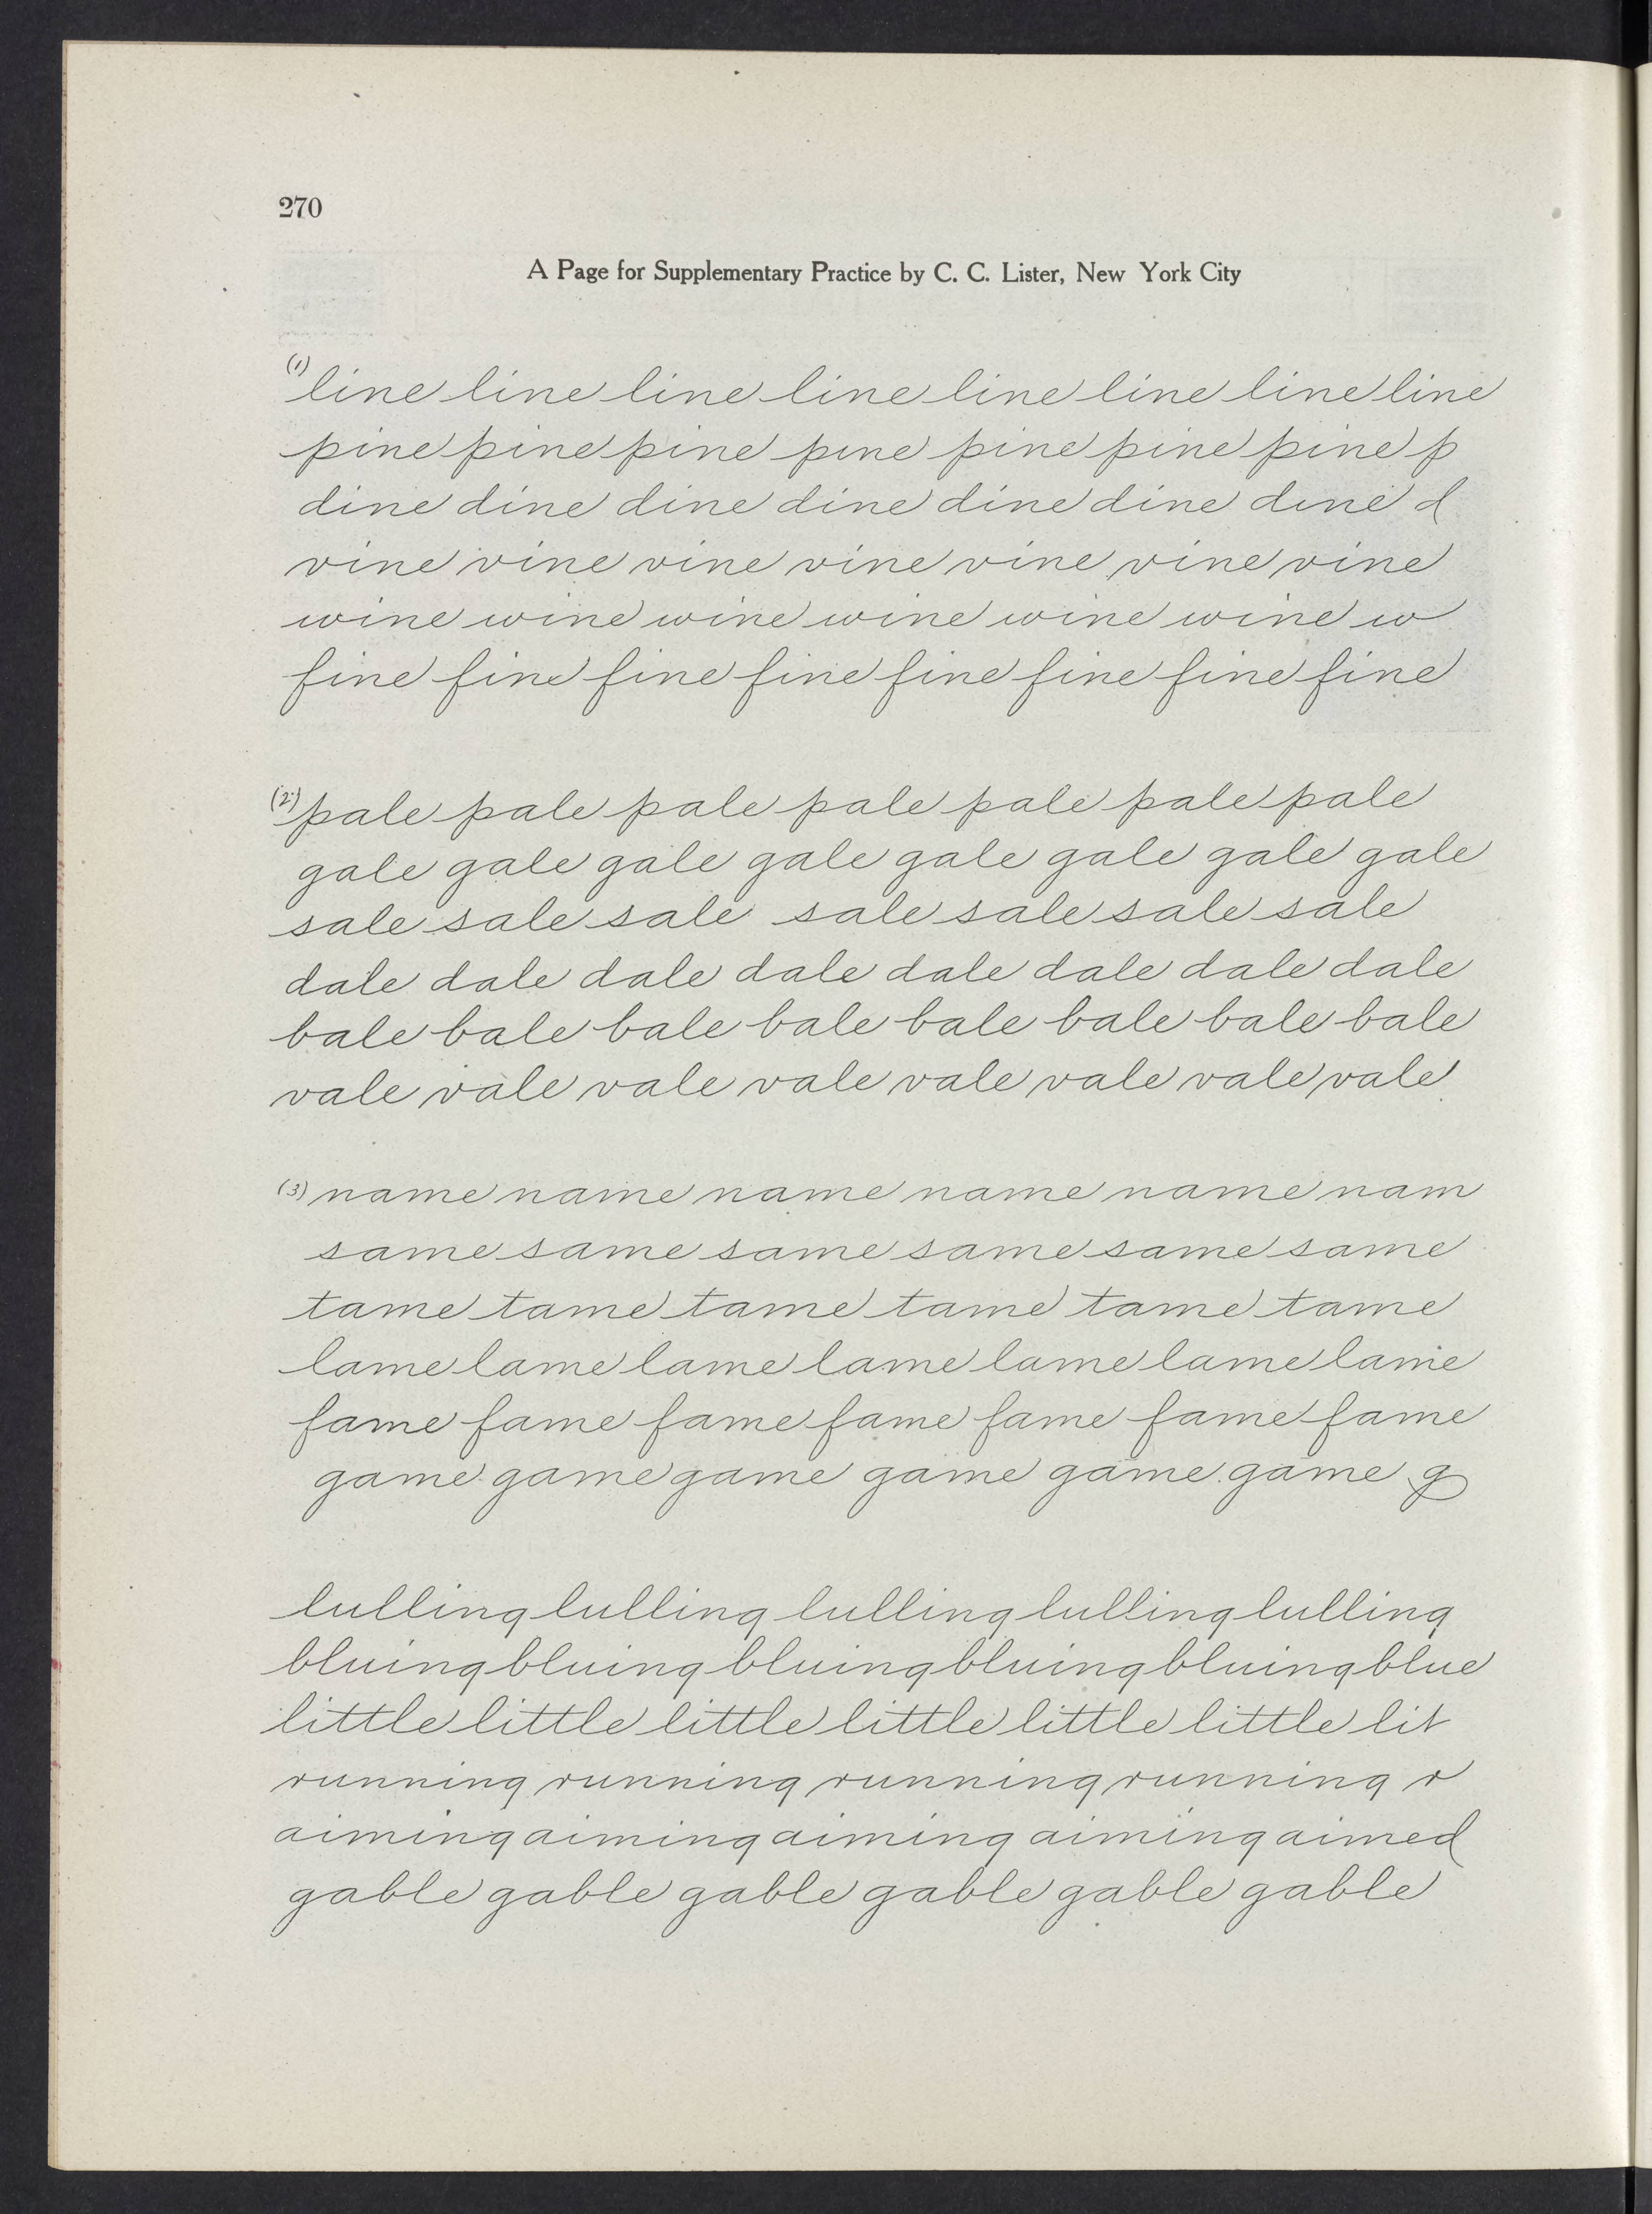 270
A Page for Supplementary Practice by C. C. Lister, New York City
(1) line line line line line line line line
pine pine pine pine pine pine pine p
dine dine dine dine dine dine dine d
vine vine vine vine vine vine vine
wine wine wine wine wine wine w
fine fine fine fine fine fine fine fine
(2) pale pale pale pale pale pale pale
gale gale gale gale gale gale gale gale
sale sale sale sale sale sale sale
dale dale dale dale dale dale dale dale
bale bale bale bale bale bale bale bale
vale vale vale vale vale vale vale vale
(3) name name name name name nam
same same same same same same
tame tame tame tame tame tame
lame lame lame lame lame lame lame
fame fame fame fame fame fame fame
game game game game game game g
lulling lulling lulling lulling lulling
bluing bluing bluing bluing bluing blue
little little little little little little lit
running running running running r
aiming aiming aiming aiming aimed
gable gable gable gable gable gable